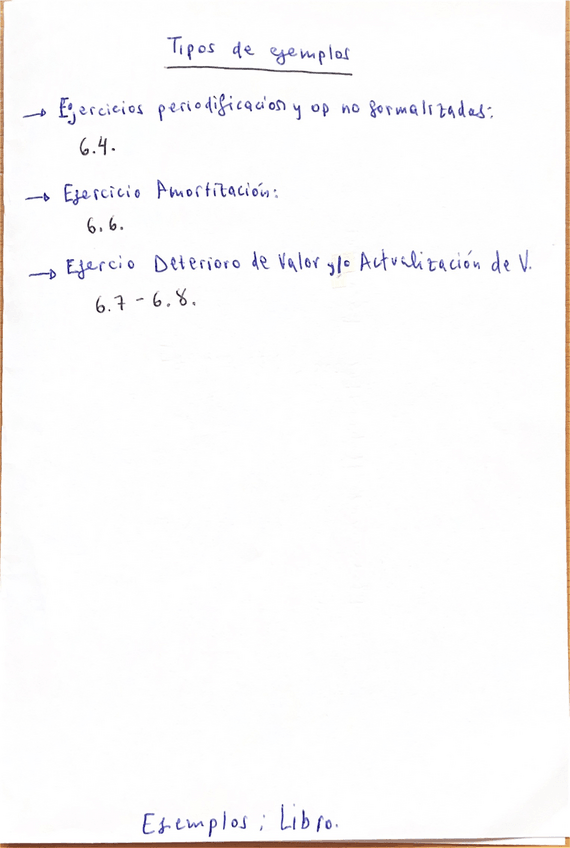 Tipos de ejemplos
→ Ejercicios periodificacion y op no formalizadas:
6.4.
→ Ejercicio Amortización:
6.6.
→ Ejercio Deterioro de Valor y/o Actualización de V.
6.7 - 6.8.
Ejemplos; Libro.